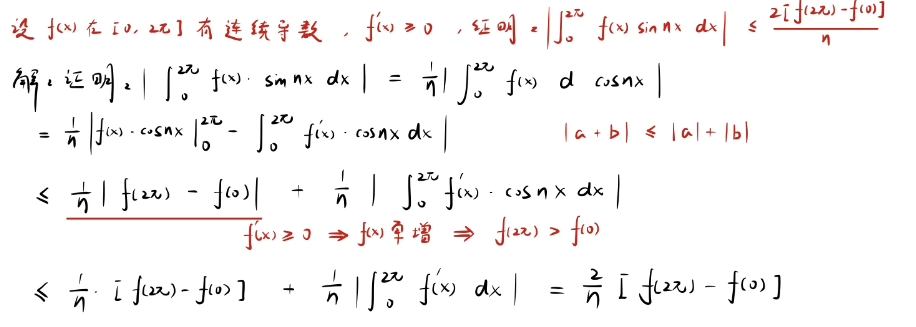 设 f(x) 在 [0, 2π] 有连续导数, f'(x) ≥ 0, 证明: |∫₀^{2π} f(x) sin nx dx| ≤ 2[f(2π) - f(0)] / n
解: 证明: |∫₀^{2π} f(x) · sin nx dx| = 1/n |∫₀^{2π} f(x) d cos nx|
= 1/n |f(x) · cos nx |₀^{2π} - ∫₀^{2π} f'(x) · cos nx dx| |a + b| ≤ |a| + |b|
≤ 1/n |f(2π) - f(0)| + 1/n |∫₀^{2π} f'(x) · cos nx dx|
f'(x) ≥ 0 ⇒ f(x) 单增 ⇒ f(2π) > f(0)
≤ 1/n · [f(2π) - f(0)] + 1/n |∫₀^{2π} f'(x) dx| = 2/n [f(2π) - f(0)]